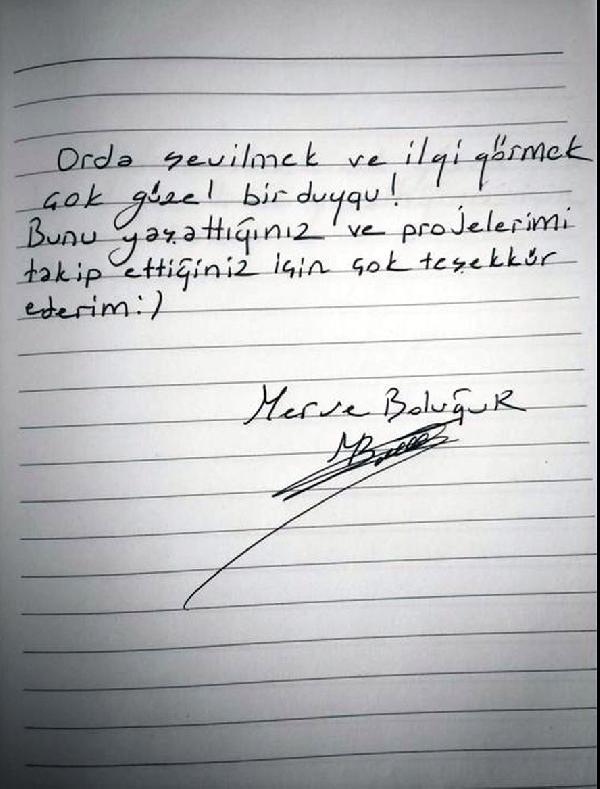 Orda sevilmek ve ilgi görmek
çok güzel bir duygu!
Bunu yaşattığınız ve projelerimi
takip ettiğiniz için çok teşekkür
ederim:)
Merve Boluğur